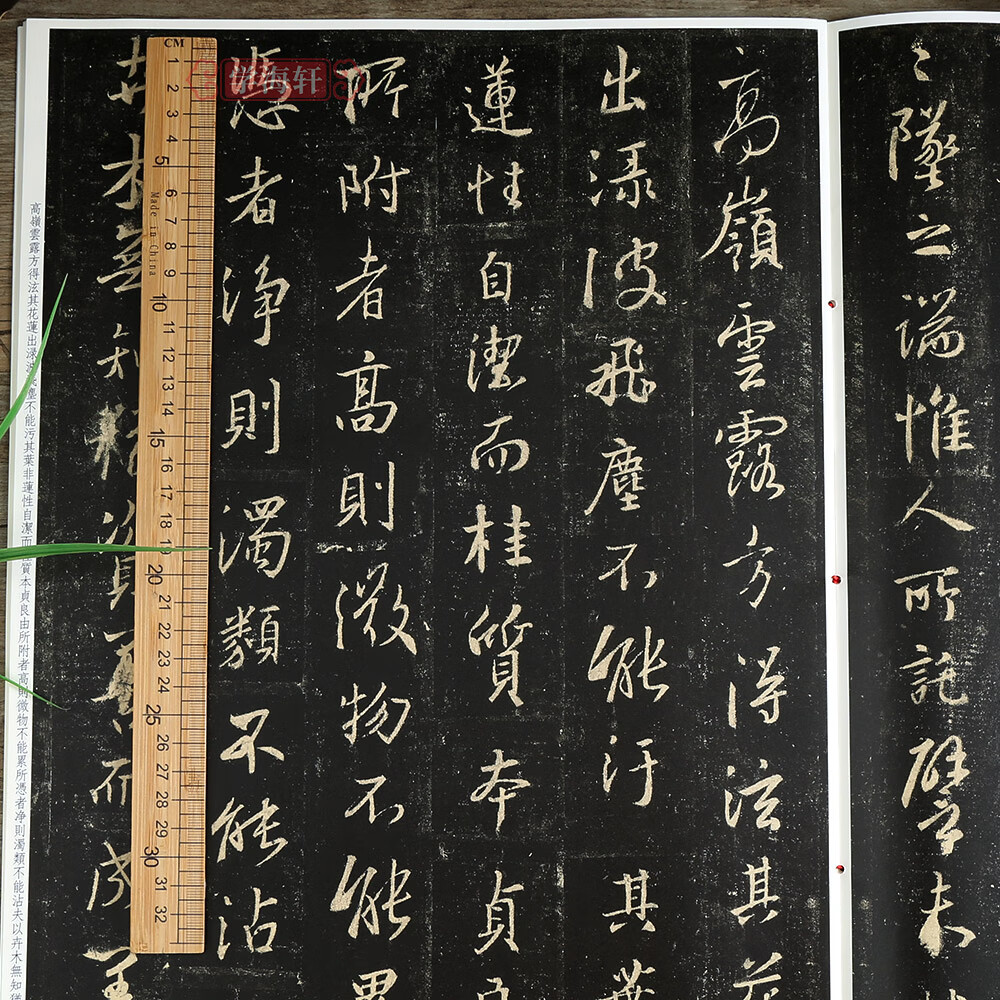 〻墜之端惟人所託譬夫
高嶺雲露方得泫其花
出渌波飛塵不能汙其葉
蓮性自潔而桂質本貞良
所附者高則微物不能累
憑者淨則濁類不能沾
卉木無知猶資善而成善
高嶺雲露方得泫其花蓮出渌波飛塵不能污其葉非蓮性自潔而桂質本貞良由所附者高則微物不能累所憑者净則濁類不能沾夫以卉木無知猶
CM
1 2 3 4 5 6 7 8 9 10 11 12 13 14 15 16 17 18 19 20 21 22 23 24 25 26 27 28 29 30 31 32
Made in China
学海轩